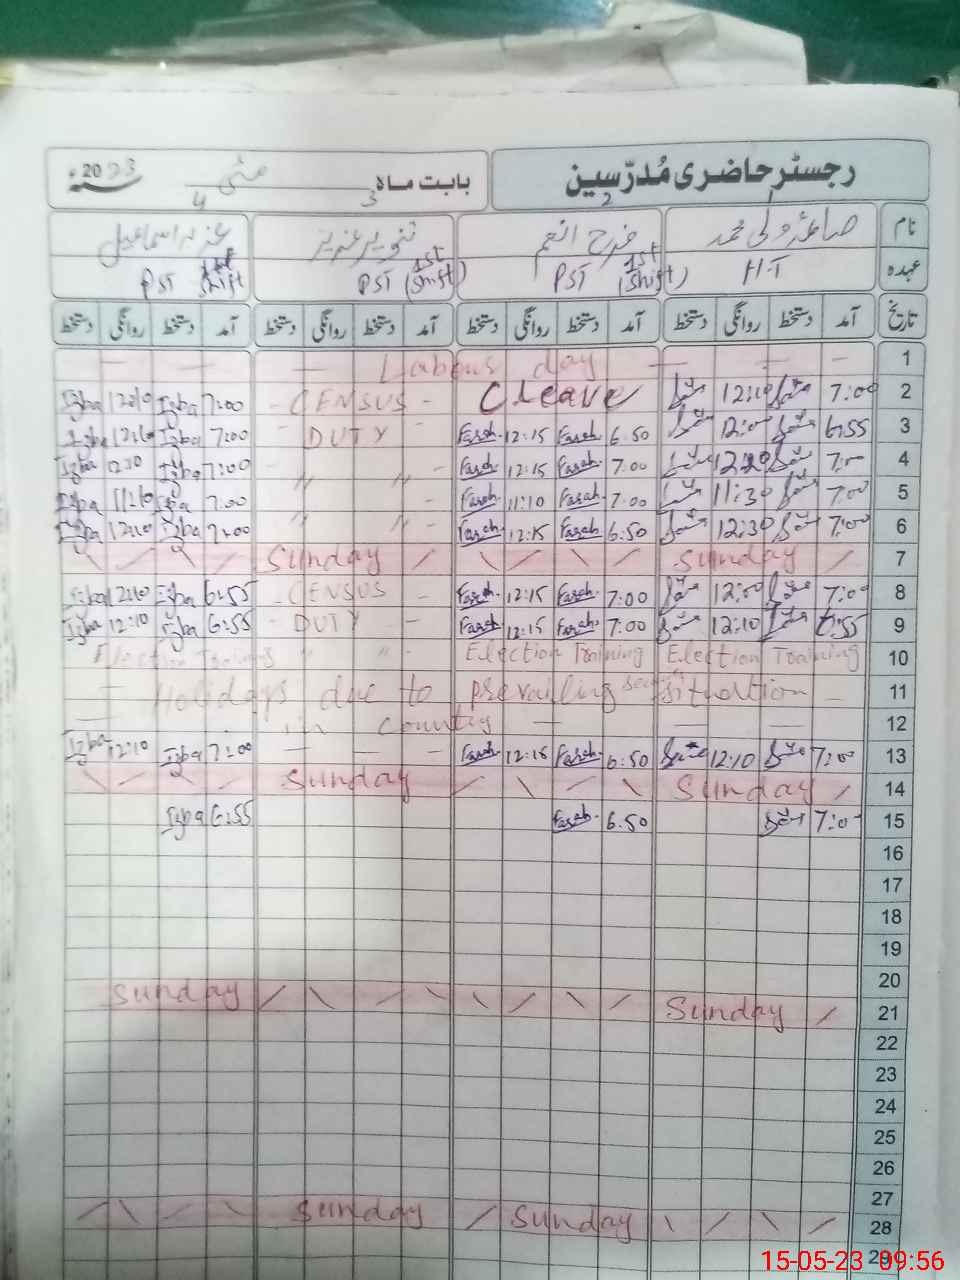 رجسٹر حاضری مُدرّسین
بابت ماہ مئی سنہ 2023ء
1 2 3 4
نام صاعقہ ولی محمد فرح انعم تنویر عزیز عزبہ اسماعیل
عہدہ H.T PST (1st Shift) PST (1st Shift) PST 1st Shift
تاریخ آمد دستخط روانگی دستخط آمد دستخط روانگی دستخط آمد دستخط روانگی دستخط آمد دستخط روانگی دستخط
1 Labour day
2 7:00 12:10 Cleave - CENSUS - 7:00 Izba 12:10 Izba
3 6:55 6.50 Farah. 12:15 Farah. - DUTY - 7:00 Izba 12:10 Izba
4 7:00 12:20 7.00 Farah. 12:15 Farah. " " - 7:00 Izba 12:10 Izba
5 7:00 11:30 7.00 Farah. 11:10 Farah. " " - 7:00 Izba 11:10 Izba
6 7:00 12:30 6.50 Farah. 12:15 Farah. " " - 7:00 Izba 12:10 Izba
7 Sunday Sunday
8 7:00 12:00 7:00 Farah. 12:15 Farah. - CENSUS - 6:55 Izba 12:10 Izba
9 6:55 12:10 7:00 Farah. 12:15 Farah. - DUTY - 6:55 Izba 12:10 Izba
10 Election Training Election Training " " - Election Training
11 Holidays due to prevailing situation -
12 in Country
13 7:00 12:10 6.50 Farah. 12:15 Farah. - - - 7:00 Izba 12:10 Izba
14 Sunday Sunday
15 7:00 6.50 Farah. 6:55 Izba
16
17
18
19
20
21 Sunday Sunday
22
23
24
25
26
27
28 Sunday Sunday
29
15-05-23 09:56